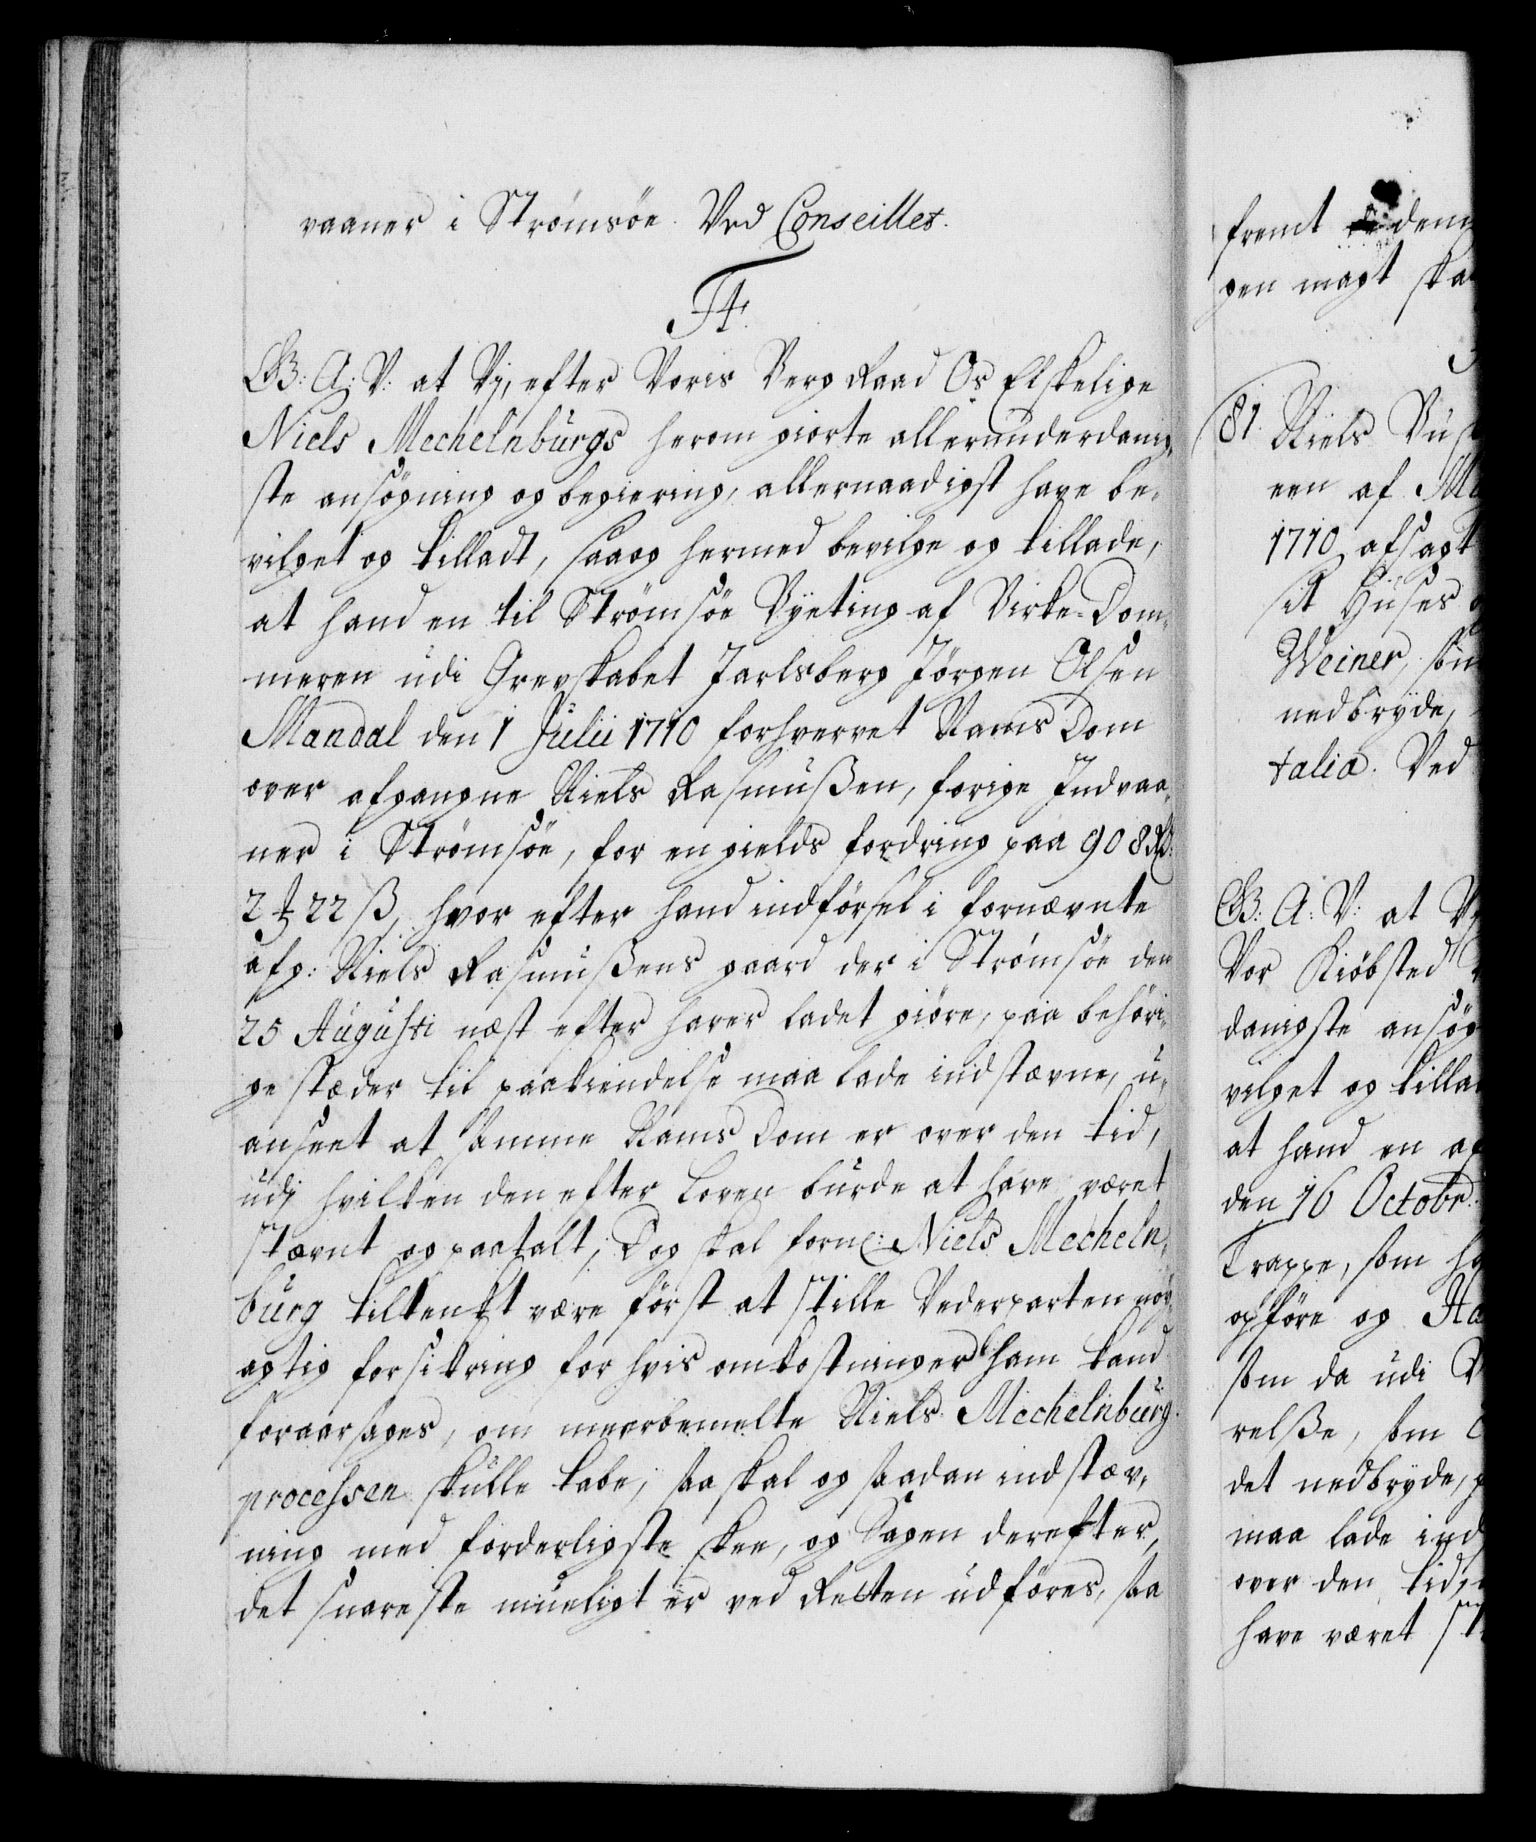 vaaner i Strømsöe. Ved Conseillet.
F4.
G: A: V: at Vj, efter Voris Berg Raad Os Elskelige
Niels Mechelnburgs herom giorte allerunderdanig,
ste ansögning og begiering, allernaadigst have be,
vilget og tilladt, saa og hermed bevilge og tillade,
at hand en til Strömsöe Byeting af Birke-Dom,
meren udi Grevskabet Jarlsberg Jörgen Olsen
Mandal den 1 Julii 1710 forhvervet Nams Dom
over afgangne Niels Rasmußen, forige Indvaa,
ner i Strömsöe, for en gields fordring paa 908 Rd:
2 ₰ 22 ß, hvor efter hand indförsel i fornævnte
afg: Niels Rasmußens gaard der i Strömsöe den
25 Augusti næst efter haver ladet giöre, paa behöri,
ge stæder til paakiendelse maa lade indstævne, u,
anseet at samme Nams Dom er over den tid,
udj hvilken den efter Loven burde at have været
stævnt og paatalt; Dog skal forne: Niels Mecheln,
burg tiltenkt være först at stille Vederparten nöy,
agtig forsikring for hvis omkostninger ham kand
foraarsages, om meerbemelte Niels Mechelnburg
processen skulle tabe; saa skal og saadan indstæv,
ning med forderligste skee, og Sagen derefter,
det snareste mueligt er ved Retten udföres, saa
fremt
dem
gen magt
81. Niels
een af
1710 afsagt
sit Huses
Weiner,
nedbryde,
talia. Ved
G: A: V: at
Vor Kiöbsted
danigste
vilget og
at hand en
den 16 Octobr:
Trappe, som
opföre og
som da udi
relße, som
det nedbryde,
maa lade
over den tid,
have været